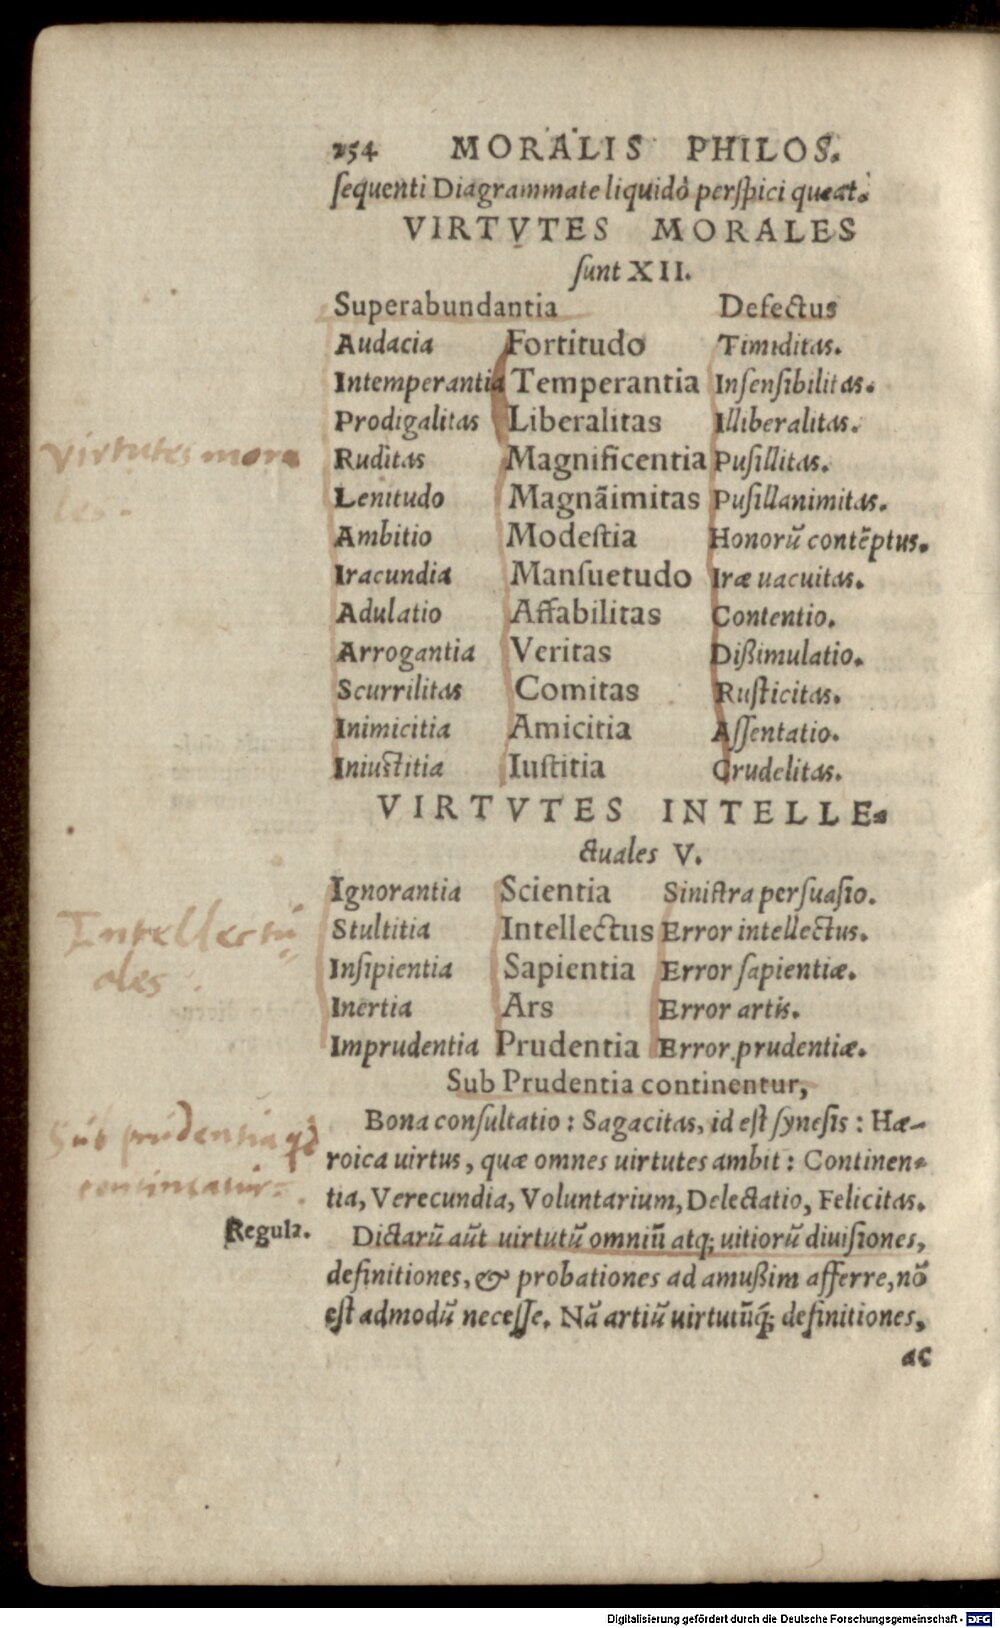 254 MORALIS PHILOS.
sequenti Diagrammate liquidò perspici queat.
VIRTVTES MORALES
sunt XII.
Superabundantia Defectus
Audacia Fortitudo Timiditas.
Intemperantia Temperantia Insensibilitas.
Prodigalitas Liberalitas Illiberalitas.
Virtutes mora
Ruditas Magnificentia Pusillitas.
les.
Lenitudo Magnãimitas Pusillanimitas.
Ambitio Modestia Honorũ contẽptus.
Iracundia Mansuetudo Iræ uacuitas.
Adulatio Affabilitas Contentio.
Arrogantia Veritas Dißimulatio.
Scurrilitas Comitas Rusticitas.
Inimicitia Amicitia Assentatio.
Iniustitia Iustitia Crudelitas.
VIRTVTES INTELLE-
ctuales V.
Ignorantia Scientia Sinistra persuasio.
Intellectu
Stultitia Intellectus Error intellectus.
ales
Insipientia Sapientia Error sapientiæ.
Inertia Ars Error artis.
Imprudentia Prudentia Error prudentiæ.
Sub Prudentia continentur,
Sub prudentia
Bona consultatio: Sagacitas, id est synesis: Hæ-
roica uirtus, quæ omnes uirtutes ambit: Continen-
tia, Verecundia, Voluntarium, Delectatio, Felicitas.
Regula.
Dictarũ aũt uirtutũ omniũ atq; uitiorũ diuisiones,
definitiones, & probationes ad amußim afferre, nõ
est admodũ necesse. Nã artiũ uirtutũq́; definitiones,
ac
Digitalisierung gefördert durch die Deutsche Forschungsgemeinschaft - DFG